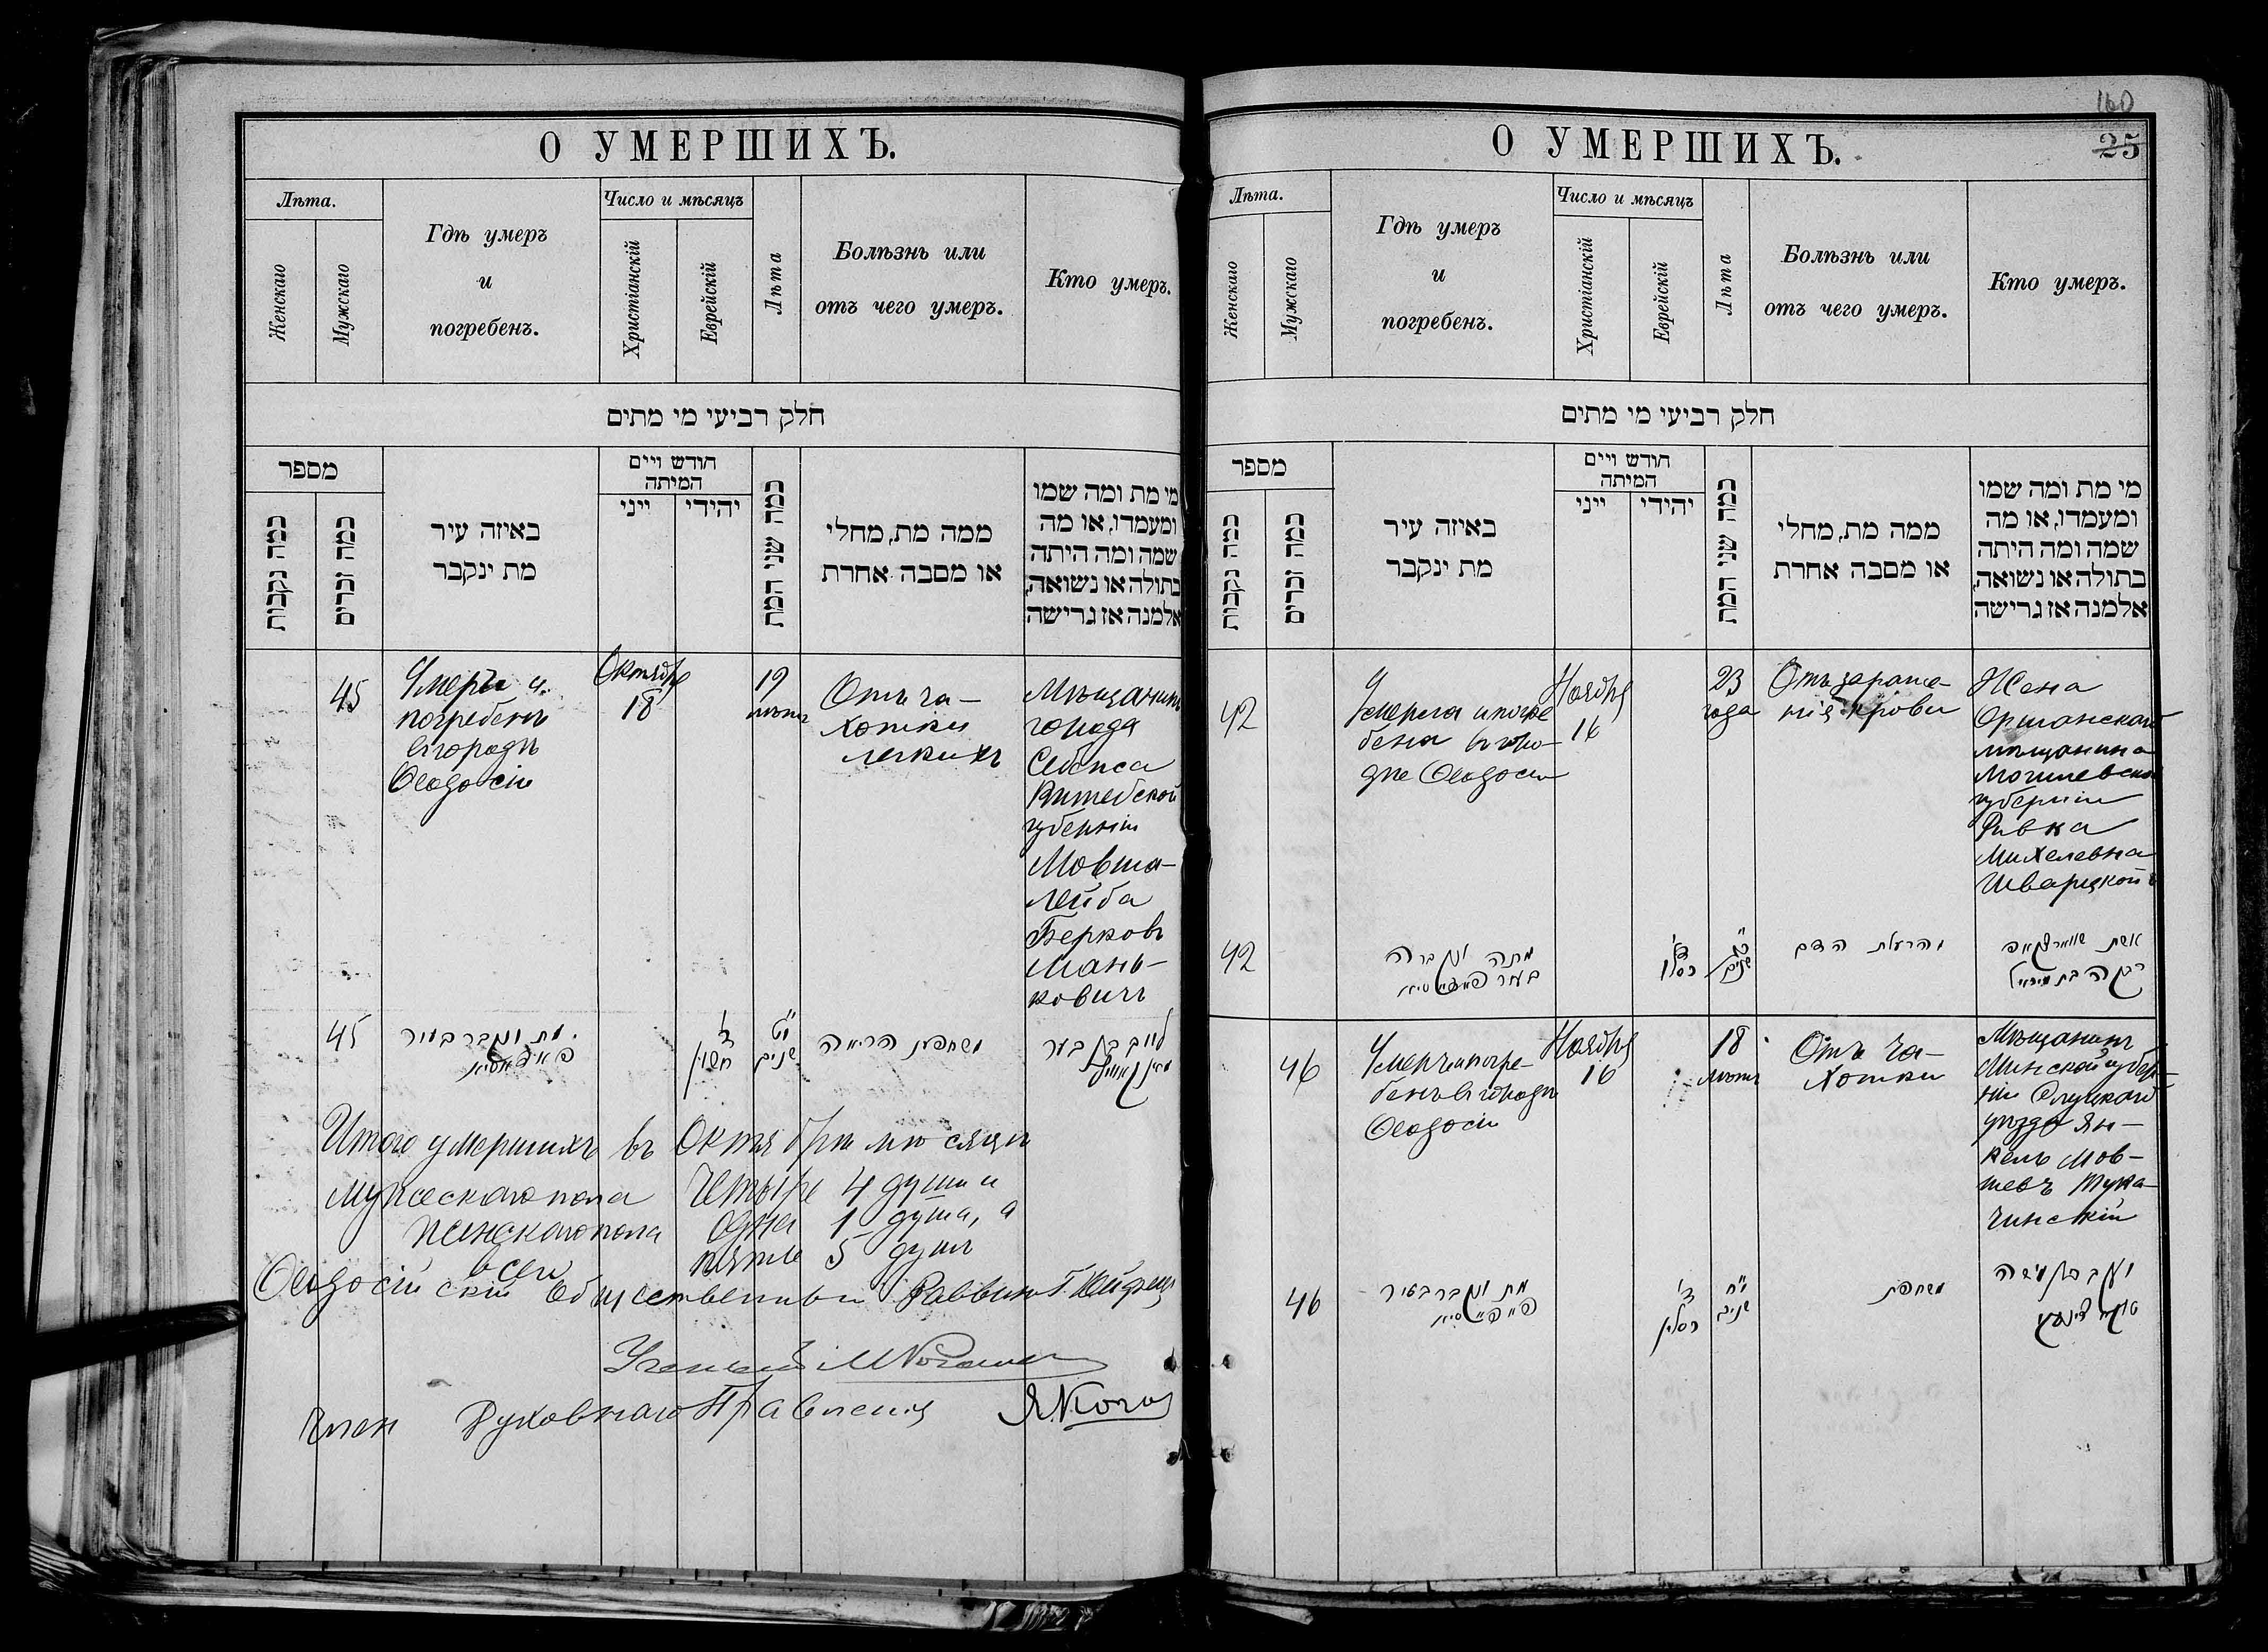 О УМЕРШИХЪ.
Лѣта.
Женскаго
Мужскаго
Гдѣ умеръ
и
погребенъ.
Число и мѣсяцъ
Христіанскій
Еврейскій
Лѣта
Болѣзнь или
отъ чего умеръ.
Кто умеръ.
חלק רביעי מי מתים
מספר
כמה נקבות
כמה זכרים
באיזה עיר
מת ינקבר
חודש ויים
המיתה
ייני
יהידי
כמה שני המת
ממה מת, מחלי
או מסבה אחרת
מי מת ומה שמו
ומעמדו, או מה
שמה ומה היתה
בתולה או נשואה,
אלמנה אז גרישה
45
Умеръ и
погребенъ
въ городѣ
Ѳеодосіи
Октября
18
19
лѣтъ
Отъ ча-
хотки
легкихъ
Мѣщанинъ
города
Себежа
Витебской
губерніи
Мовша-
Лейба
Берковъ
Мань-
ковичъ
45
מת ונקבר בעיר
חשון
י״ט
שנים
משחפת הריאה
Итого умершихъ въ Октябрѣ мѣсяцѣ
мужескаго пола четыре 4 души и
женскаго пола одна 1 душа, а
всего пять 5 душъ
Ѳеодосійскій Общественный Раввинъ
Ученый
Членъ Духовнаго Правленія
160
25
О УМЕРШИХЪ.
Лѣта.
Женскаго
Мужскаго
Гдѣ умеръ
и
погребенъ.
Число и мѣсяцъ
Христіанскій
Еврейскій
Лѣта
Болѣзнь или
отъ чего умеръ.
Кто умеръ.
חלק רביעי מי מתים
מספר
כמה נקבות
כמה זכרים
באיזה עיר
מת ינקבר
חודש ויים
המיתה
ייני
יהידי
כמה שני המת
ממה מת, מחלי
או מסבה אחרת
מי מת ומה שמו
ומעמדו, או מה
שמה ומה היתה
בתולה או נשואה,
אלמנה אז גרישה
42
Умерла и погре-
бена въ горо-
дѣ Ѳеодосіи
Ноября
16
23
года
Отъ зараже-
нія крови
Жена
Оршанскаго
мѣщанина
Могилевской
губерніи
Ривка
Михелевна
42
מתה ונקברה
כסלו
שנים
הרעלת הדם
אשת
רבקה בת
46
Умеръ и погре-
бенъ въ городѣ
Ѳеодосіи
Ноября
16
18
лѣтъ
Отъ ча-
хотки
Мѣщанинъ
Минской губер-
ніи Слуцкаго
уѣзда Ян-
кель Мов-
шевъ Тука-
чинскій
46
מת ונקבר בעיר
כסליו
י״ח
שנים
משחפת
יעקב בן משה